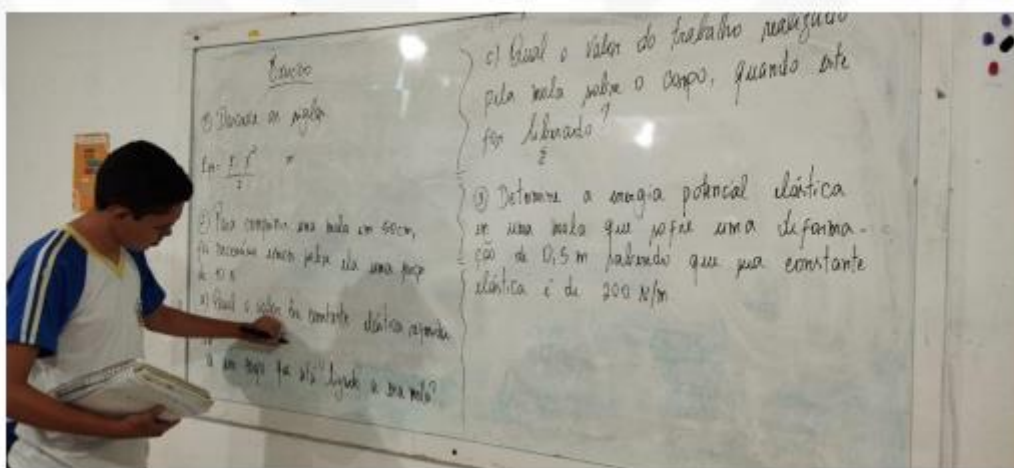 Exercício
① Descreva as siglas
② Para comprimir uma mola em 50cm,
foi necessário exercer sobre ela uma força
de 10 N
a) Qual o valor da constante elástica
a um corpo que está ligado a sua mola?
c) Qual o valor do trabalho realizado
pela mola sobre o corpo, quando este
for liberado?
③ Determine a energia potencial elástica
em uma mola que sofre uma deforma-
ção de 0,5 m sabendo que sua constante
elástica é de 200 N/m